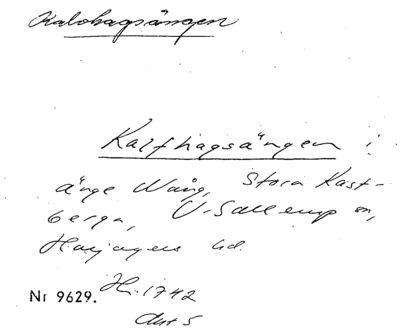 Kalvhagsängen
Kalfhagsängen i
änge Wång, Stora Kast-
berga, V. Sallerup sn,
Harjagers hd.
Nr 9629. Hi. 1742
Akt 5